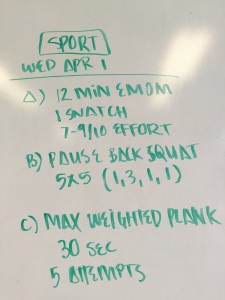 SPORT
WED APR 1
A) 12 MIN EMOM
1 SNATCH
7-9/10 EFFORT
B) PAUSE BACK SQUAT
5x5 (1,3,1,1)
C) MAX WEIGHTED PLANK
30 SEC
5 ATTEMPTS